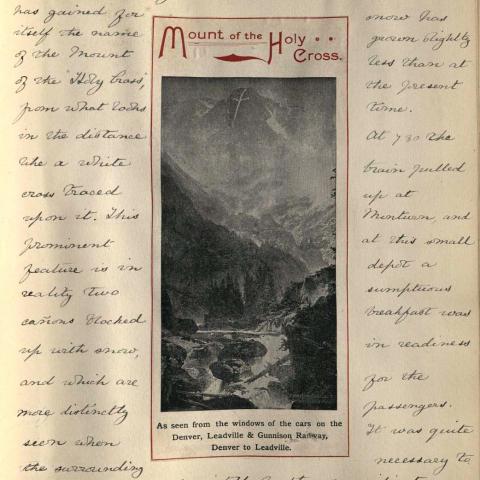 has gained for
itself the name
of the Mount
of the "Holy Cross",
from what looks
in the distance
like a white
cross traced
upon it. This
prominent
feature is in
reality two
cañons blocked
up with snow,
and which are
more distinctly
seen when
the surrounding
Mount of the Holy
Cross.
As seen from the windows of the cars on the
Denver, Leadville & Gunnison Railway,
Denver to Leadville.
snow has
grown slightly
less than at
the present
time.
At 7 30 the
train pulled
up at
Minturn, and
at this small
depot a
sumptuous
breakfast was
in readiness
for the
passengers.
It was quite
necessary to